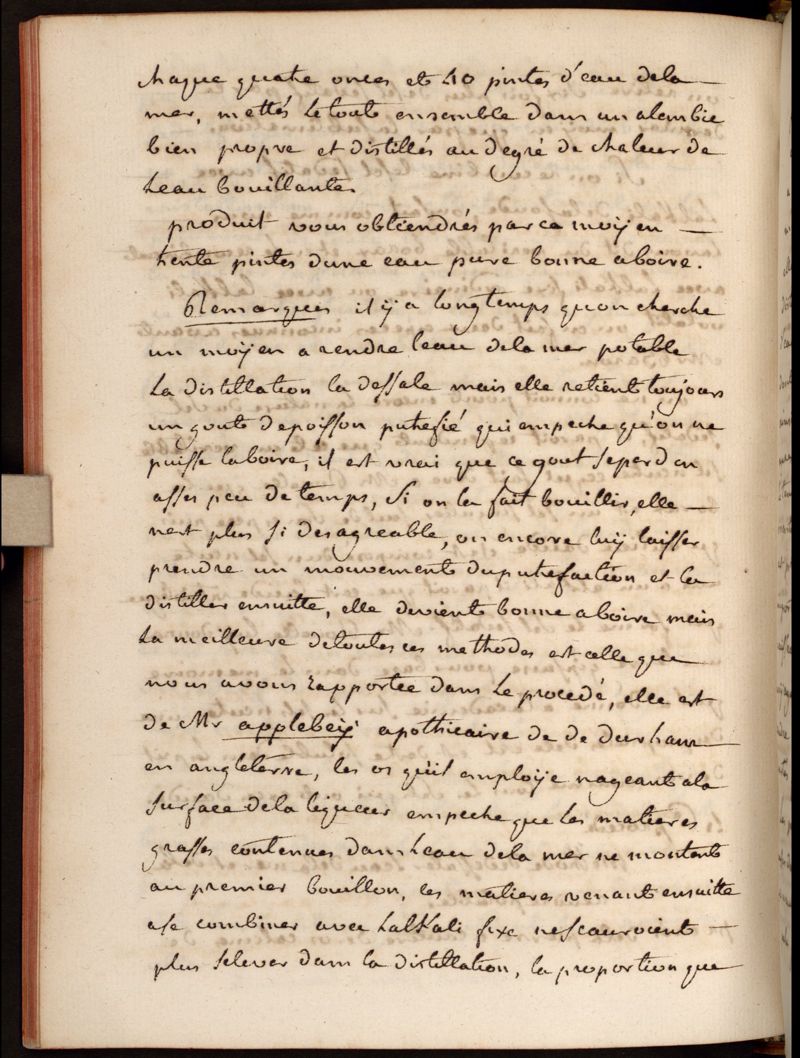 chaque quatre onces et 40 pintes d'eau dela
mer, mettés le tout ensemble dans un alembic
bien propre et distillés au degré de chaleur de
leau bouillante
produit vous obtiendrés par ce moÿen
trente pintes dune eau pure bonne a boire.
Remarques il ÿ a longtemps quon cherche
un moÿen a rendre leau dela mer potable
la distillation la dessale mais elle retient toujours
un gout de poisson putrefié qui empeche qu'on ne
puisse la boire, il est vrai que ce gout se perd en
assés peu de temps, si on la fait bouillir, elle
nest plus si desagreable, on encore luÿ laisser
prendre un mouvement du putrefaction et la
distiller ensuitte, elle devient bonne a boire mais
la meilleure de toutes ces methodes est celle que
nous avons rapportée dans le procedé, elle est
de Mr applebeÿ apothicaire de de durham
en angleterre, les os qu'il emploÿe nageant ala
surface dela liqueur empeche que les matieres
grasses contenues dans leau dela mer ne montent
au premier bouillon, les matieres venant ensuitte
ase combiner avec lalkali fixe nescauroient
plus selever dans la distillation, la proportion que